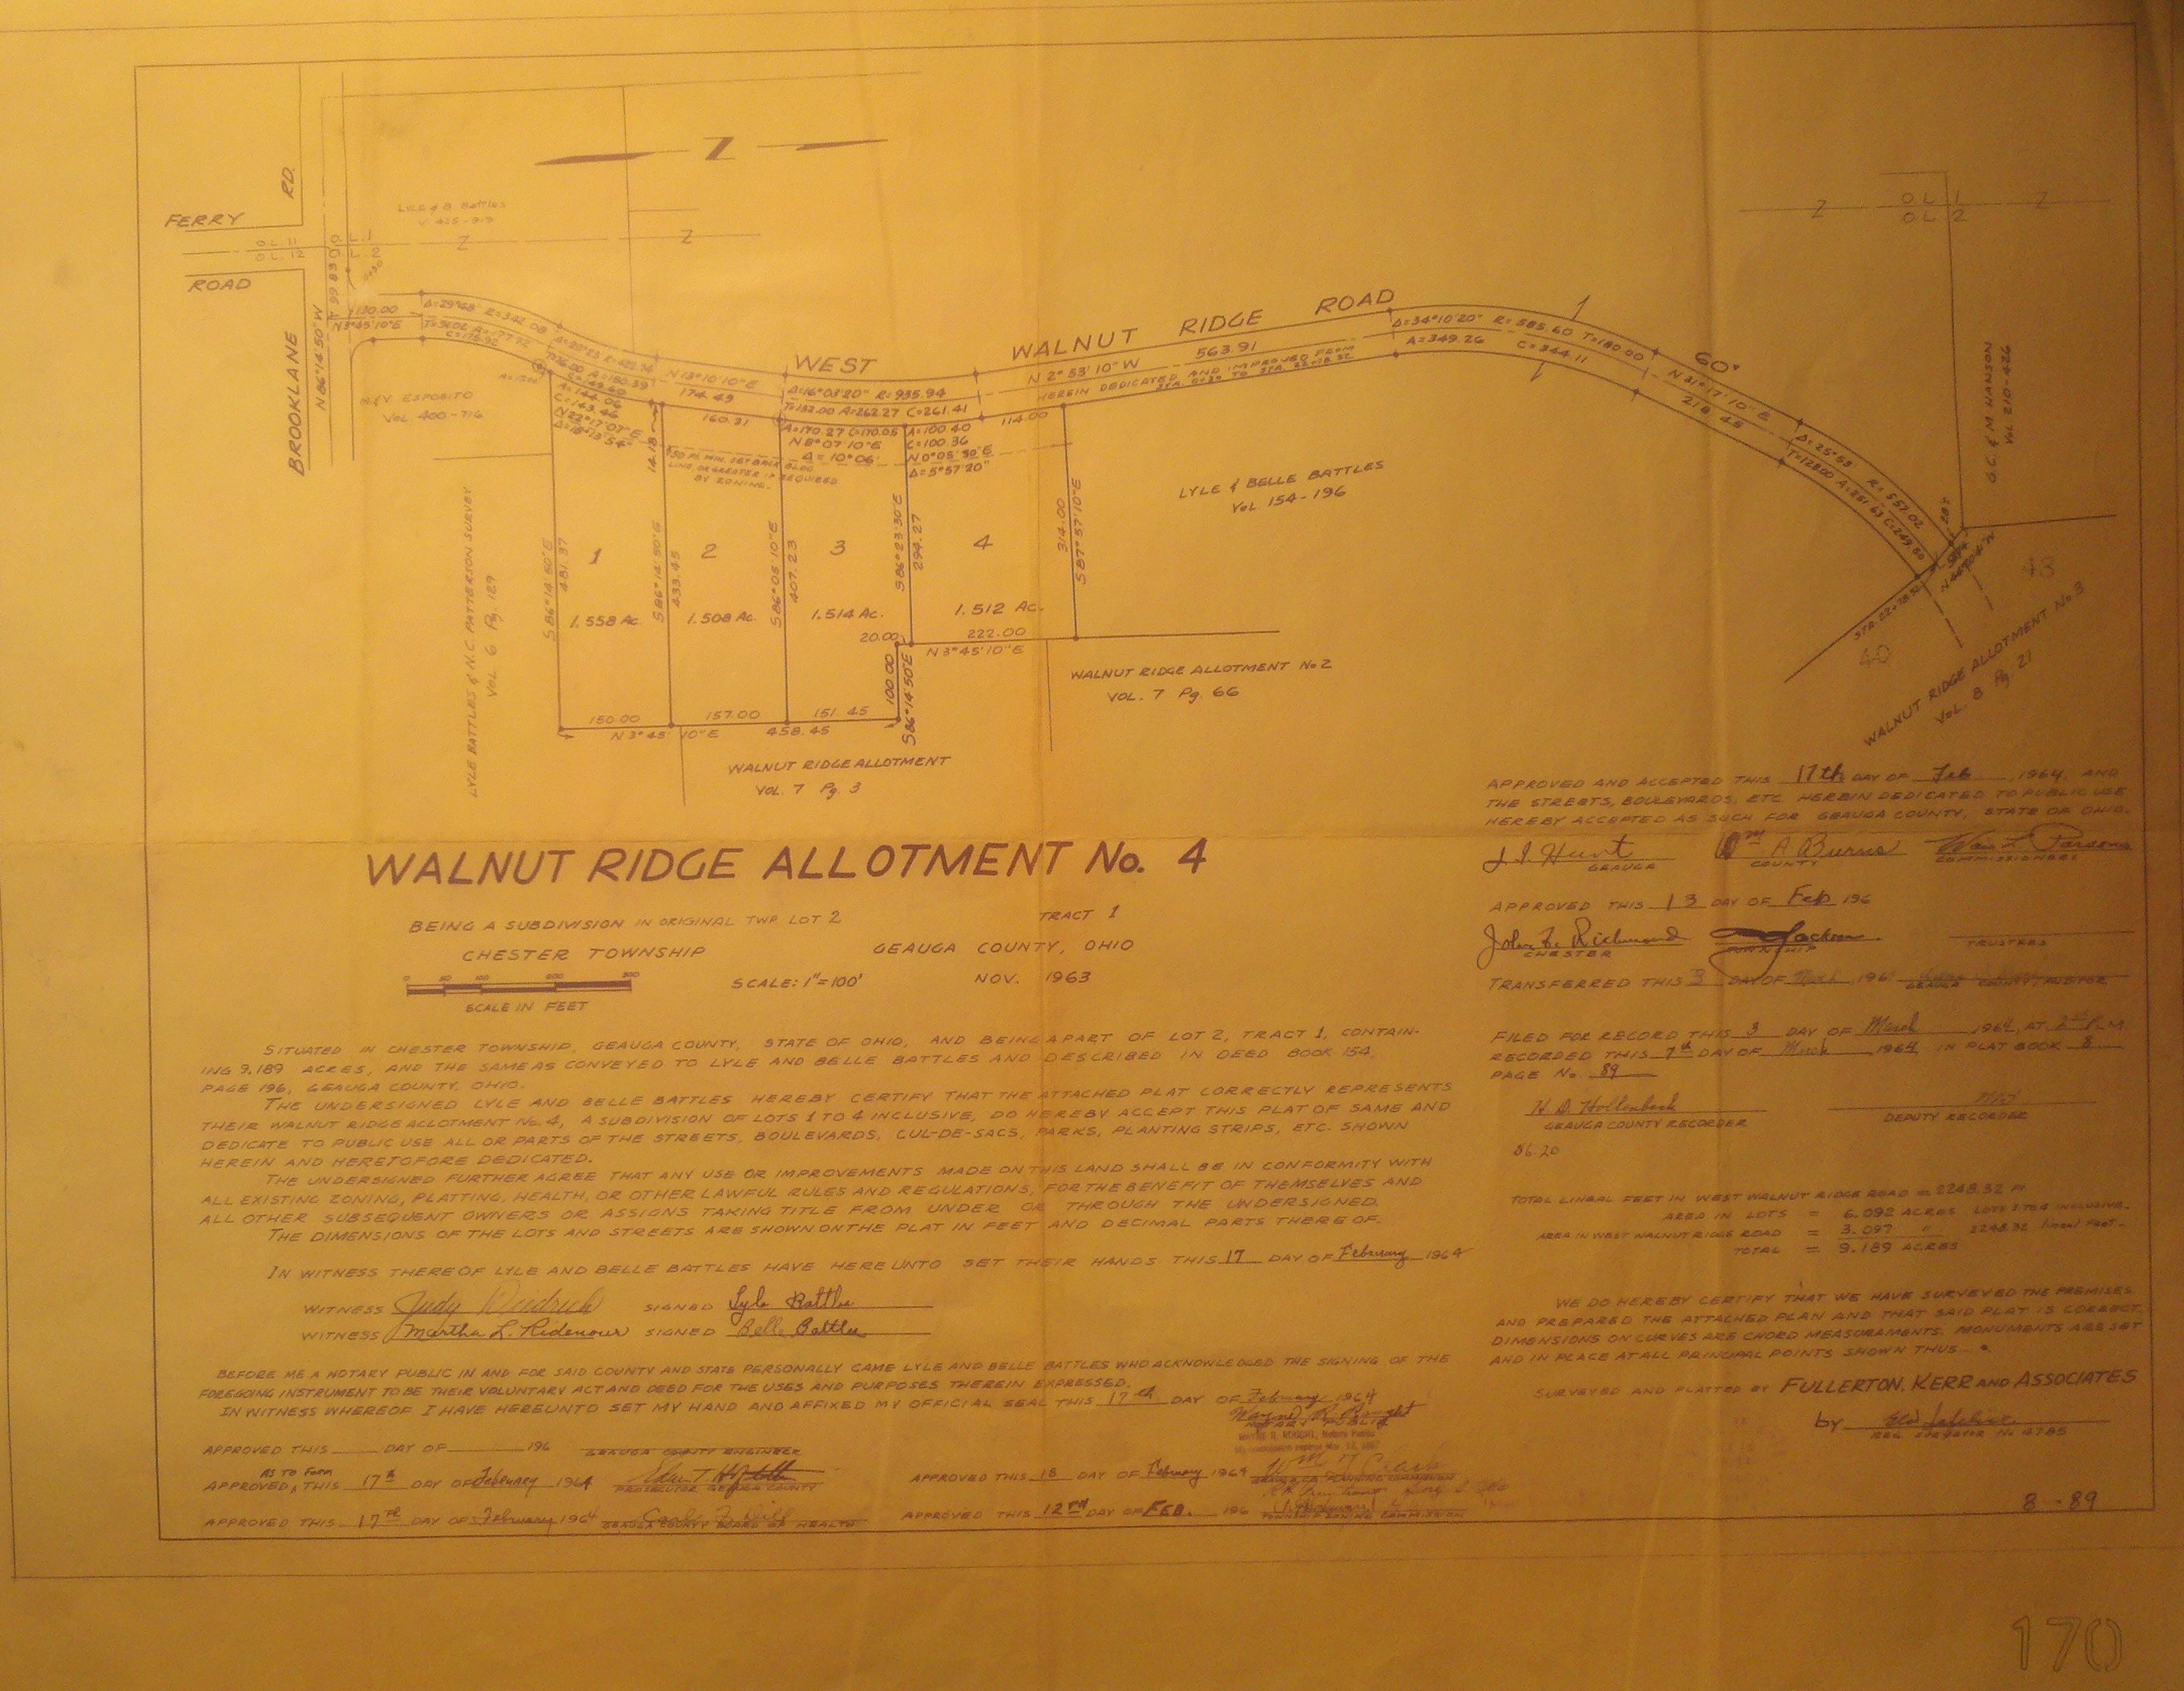 FERRY
RD.
ROAD
BROOKLANE
N 86°14'50" W
O.L. 11
O.L. 12
O.L. 1
O.L. 2
LYLE & B. BATTLES
Z
Z
Z
130.00
N 3°45'10" E
Δ=29°48' R=342.08
C=175.92
N 13°10'10" E
174.49
160.31
14.18
A=144.06
C=143.46
N 22°17'07" E
Δ=18°13'54"
WEST WALNUT RIDGE ROAD
Δ=16°03'20" R=935.94
T=132.00 A=262.27 C=261.41
A=170.27 C=170.05
N 8°07'10" E
Δ=10°06'
A=100.40
C=100.36
N 0°05'30" E
Δ=5°57'20"
114.00
N 2°53'10" W 563.91
HEREIN DEDICATED AND IMPROVED FROM
Δ=34°10'20" R=585.60 T=180.00
A=349.26 C=344.11
60'
N 31°17'10" E
218.45
Δ=25°53' R=557.02
T=128.00 A=251.63 C=249.50
O.L. 1
O.L. 2
Z
Z
& M HANSON
VOL 210-426
ESPOSITO
VOL 400-716
50 FT. MIN. SET BACK BLDG
LINE, OR GREATER IF REQUIRED
BY ZONING.
LYLE & BELLE BATTLES
VOL 154-196
LYLE BATTLES & N.C. PATTERSON SURVEY
VOL 6 Pg. 129
S 86°14'50" E
481.37
1
1.558 Ac.
S 86°14'50" E
433.45
2
1.508 Ac.
S 86°05'10" E
407.23
3
1.514 Ac.
S 86°23'30" E
294.27
4
1.512 Ac.
314.00
S 87°57'10" E
20.00
222.00
N 3°45'10" E
100.00
S 86°14'50" E
150.00
157.00
151.45
N 3°45'10" E 458.45
WALNUT RIDGE ALLOTMENT No 2
VOL. 7 Pg. 66
WALNUT RIDGE ALLOTMENT
VOL. 7 Pg. 3
STA. 22+78.32
40
43
WALNUT RIDGE ALLOTMENT No 3
VOL. 8 Pg. 21
WALNUT RIDGE ALLOTMENT No. 4
BEING A SUBDIVISION IN ORIGINAL TWP. LOT 2 TRACT 1
CHESTER TOWNSHIP GEAUGA COUNTY, OHIO
SCALE: 1"=100' NOV. 1963
SCALE IN FEET
SITUATED IN CHESTER TOWNSHIP, GEAUGA COUNTY, STATE OF OHIO, AND BEING A PART OF LOT 2, TRACT 1, CONTAIN-
ING 9.189 ACRES, AND THE SAME AS CONVEYED TO LYLE AND BELLE BATTLES AND DESCRIBED IN DEED BOOK 154,
PAGE 196, GEAUGA COUNTY, OHIO.
THE UNDERSIGNED LYLE AND BELLE BATTLES HEREBY CERTIFY THAT THE ATTACHED PLAT CORRECTLY REPRESENTS
THEIR WALNUT RIDGE ALLOTMENT No. 4, A SUBDIVISION OF LOTS 1 TO 4 INCLUSIVE, DO HEREBY ACCEPT THIS PLAT OF SAME AND
DEDICATE TO PUBLIC USE ALL OR PARTS OF THE STREETS, BOULEVARDS, CUL-DE-SACS, PARKS, PLANTING STRIPS, ETC. SHOWN
HEREIN AND HERETOFORE DEDICATED.
THE UNDERSIGNED FURTHER AGREE THAT ANY USE OR IMPROVEMENTS MADE ON THIS LAND SHALL BE IN CONFORMITY WITH
ALL EXISTING ZONING, PLATTING, HEALTH, OR OTHER LAWFUL RULES AND REGULATIONS, FOR THE BENEFIT OF THEMSELVES AND
ALL OTHER SUBSEQUENT OWNERS OR ASSIGNS TAKING TITLE FROM UNDER OR THROUGH THE UNDERSIGNED.
THE DIMENSIONS OF THE LOTS AND STREETS ARE SHOWN ON THE PLAT IN FEET AND DECIMAL PARTS THERE OF.
IN WITNESS THEREOF LYLE AND BELLE BATTLES HAVE HERE UNTO SET THEIR HANDS THIS 17 DAY OF February 1964
WITNESS Judy SIGNED Lyle Battles
WITNESS Martha L. Ridenour SIGNED Belle Battles
BEFORE ME A NOTARY PUBLIC IN AND FOR SAID COUNTY AND STATE PERSONALLY CAME LYLE AND BELLE BATTLES WHO ACKNOWLEDGED THE SIGNING OF THE
FOREGOING INSTRUMENT TO BE THEIR VOLUNTARY ACT AND DEED FOR THE USES AND PURPOSES THEREIN EXPRESSED.
IN WITNESS WHEREOF I HAVE HEREUNTO SET MY HAND AND AFFIXED MY OFFICIAL SEAL THIS 17th DAY OF February 1964
NOTARY PUBLIC
APPROVED THIS DAY OF 196 GEAUGA COUNTY ENGINEER
AS TO FORM
APPROVED, THIS 17th DAY OF February 1964 PROSECUTOR GEAUGA COUNTY
APPROVED THIS 17th DAY OF February 1964 GEAUGA COUNTY BOARD OF HEALTH
APPROVED THIS 18 DAY OF February 1964 GEAUGA CO. PLANNING COMMISSION
APPROVED THIS 12TH DAY OF FEB. 196 TOWNSHIP ZONING COMMISSION
APPROVED AND ACCEPTED THIS 17th DAY OF Feb 1964, AND
THE STREETS, BOULEVARDS, ETC. HEREIN DEDICATED TO PUBLIC USE
HEREBY ACCEPTED AS SUCH FOR GEAUGA COUNTY, STATE OF OHIO.
Hunt A Burns Parsons
GEAUGA COUNTY COMMISSIONERS
APPROVED THIS 13 DAY OF Feb 196
John F. Richmond Jackson
CHESTER TOWNSHIP TRUSTEES
TRANSFERRED THIS 3 DAY OF March 196 GEAUGA COUNTY AUDITOR
FILED FOR RECORD THIS 3 DAY OF March 1964, AT P.M.
RECORDED THIS 7th DAY OF March 1964 IN PLAT BOOK 8
PAGE No. 89
H. D. Hollenbeck
GEAUGA COUNTY RECORDER DEPUTY RECORDER
TOTAL LINEAL FEET IN WEST WALNUT RIDGE ROAD = 2248.32 FT
AREA IN LOTS = 6.092 ACRES LOTS 1 TO 4 INCLUSIVE.
AREA IN WEST WALNUT RIDGE ROAD = 3.097 " 2248.32 lineal feet.
TOTAL = 9.189 ACRES
WE DO HEREBY CERTIFY THAT WE HAVE SURVEYED THE PREMISES
AND PREPARED THE ATTACHED PLAN AND THAT SAID PLAT IS CORRECT.
DIMENSIONS ON CURVES ARE CHORD MEASURAMENTS. MONUMENTS ARE SET
AND IN PLACE AT ALL PRINCIPAL POINTS SHOWN THUS
SURVEYED AND PLATTED BY FULLERTON, KERR AND ASSOCIATES
by
REG. SURVEYOR No 4785
8-89
170